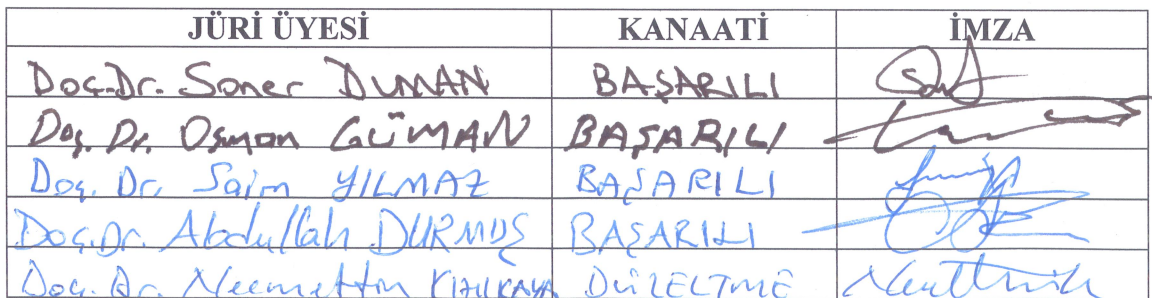 JÜRİ ÜYESİ KANAATİ İMZA
Doç.Dr. Soner DUMAN BAŞARILI
Doç. Dr. Osman GÜMAN BAŞARILI
Doç. Dr. Saim YILMAZ BAŞARILI
Doç.Dr. Abdullah DURMUŞ BAŞARILI
Doç. Dr. Necmettin KIZILKAYA DÜZELTME